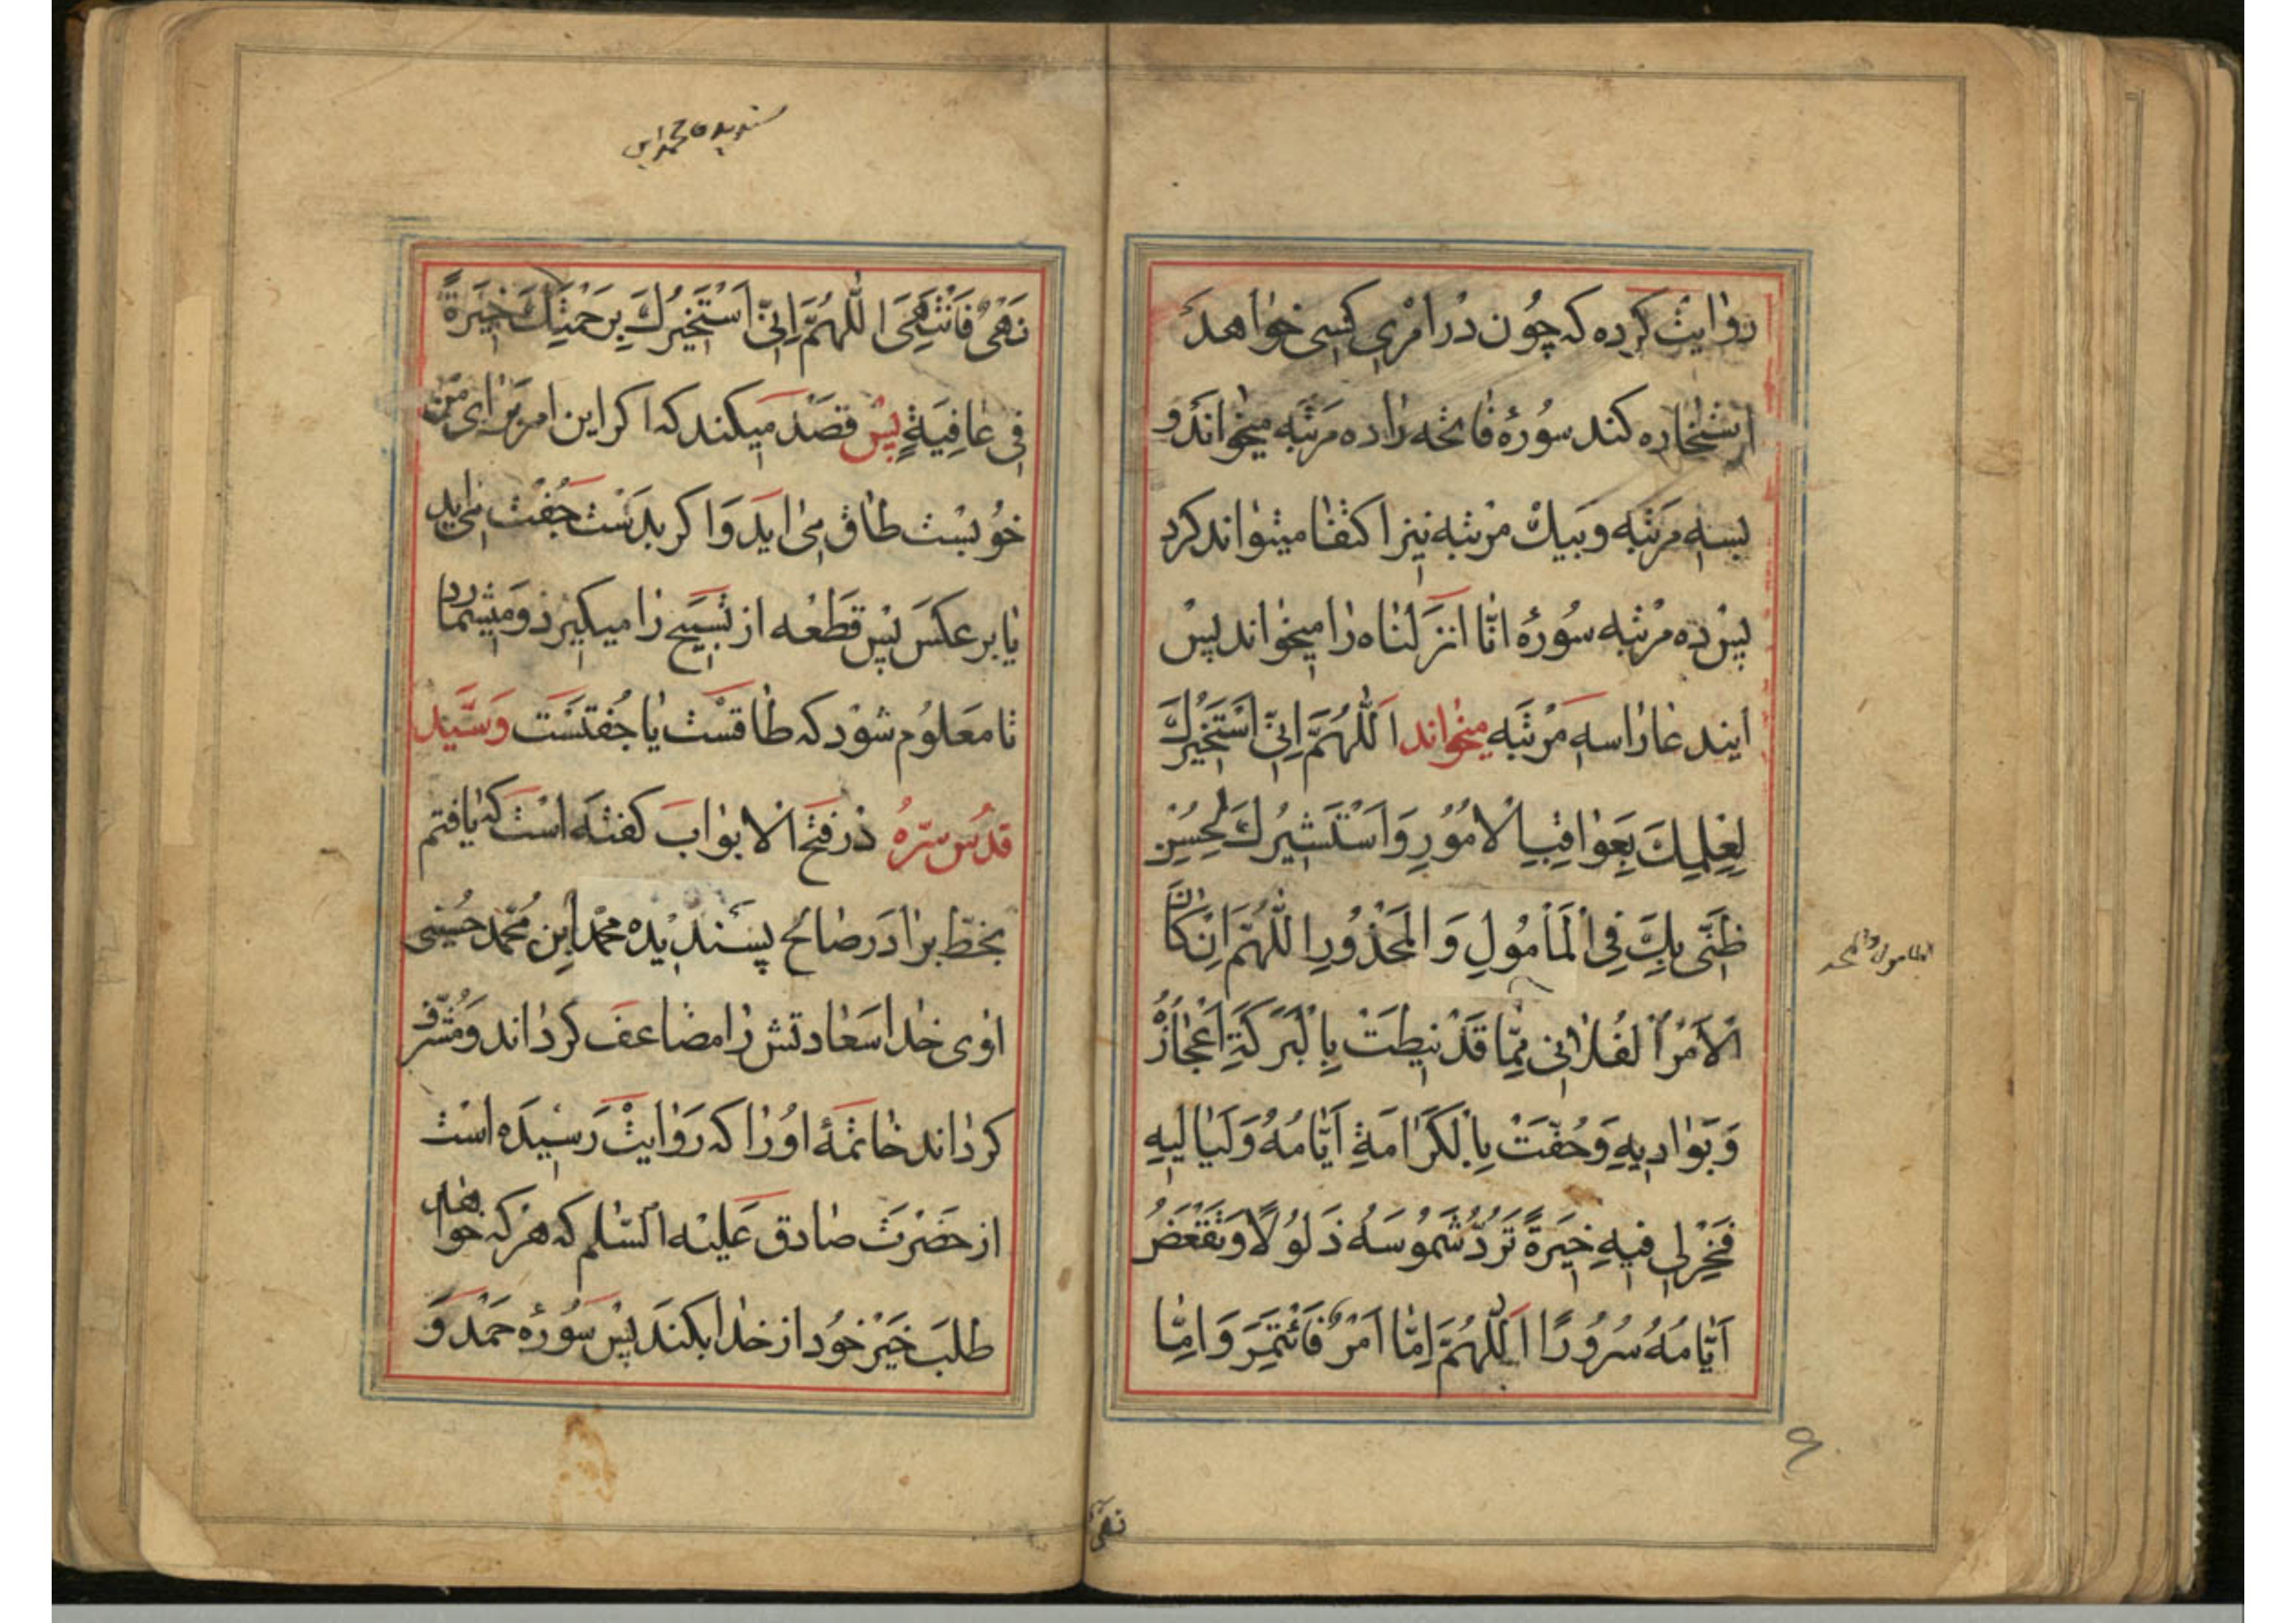 روایت کرده که چون در امری کسی خواهد
استخاره کند سورهٔ فاتحه را ده مرتبه میخواند و
بسه مرتبه و بیک مرتبه نیز اکتفا میتواند کرد
پس ده مرتبه سورهٔ انّا انزلناه را میخواند پس
ایندعا را سه مرتبه میخواند اَللّٰهُمَّ اِنّی اَسْتَخیرُكَ
لِعِلمِكَ بِعَواقِبِ الْاُمُورِ وَاَسْتَشیرُكَ لِحُسْنِ
ظَنّی بِكَ فِی الْمَأمُولِ وَالْمَحْذُورِ اللّٰهُمَّ اِنْ كَانَ
الْاَمْرُ الْفُلانی مِمّا قَدْ نیطَتْ بِالْبَرَكَةِ اَعْجازُهُ
وَبَوادیهِ وَحُفَّتْ بِالْكَرامَةِ اَیّامُهُ وَلَیالیهِ
فَخِرْلی فیهِ خِیَرَةً تَرُدُّ شَمُوسَهُ ذَلُولًا وَتَقْعَضُ
اَیّامَهُ سُرُورًا اَللّٰهُمَّ اِمّا اَمْرٌ فَأْتَمِرَ وَاِمّا
نَهْیٌ
المامول والمحذ
۶
نَهْیٌ فَاَنْتَهِیَ اللّٰهُمَّ اِنّی اَسْتَخیرُكَ بِرَحْمَتِكَ خِیَرَةً
فی عافِیَةٍ پس قصد میکند که اکر این امر برای من
خوبست طاق می اید و اکر بدست جفت می اید
یا بر عکس پس قطعه از تسبیح را میکیرد و میشمارد
تا معلوم شود که طاقست یا جفتست وسیّد
قدّس سرّه در فتح الابواب کفته است که یافتم
بخطّ برادر صالح پسندیده محمّد ابن محمّد حسینی
اوی خدا سعادتش را مضاعف کرداند و مشرّف
کرداند خاتمهٔ او را که روایت رسیده است
از حضرت صادق علیه السّلم که هرکه خواهد
طلب خیر خود از خدا بکند پس سورهٔ حمد و